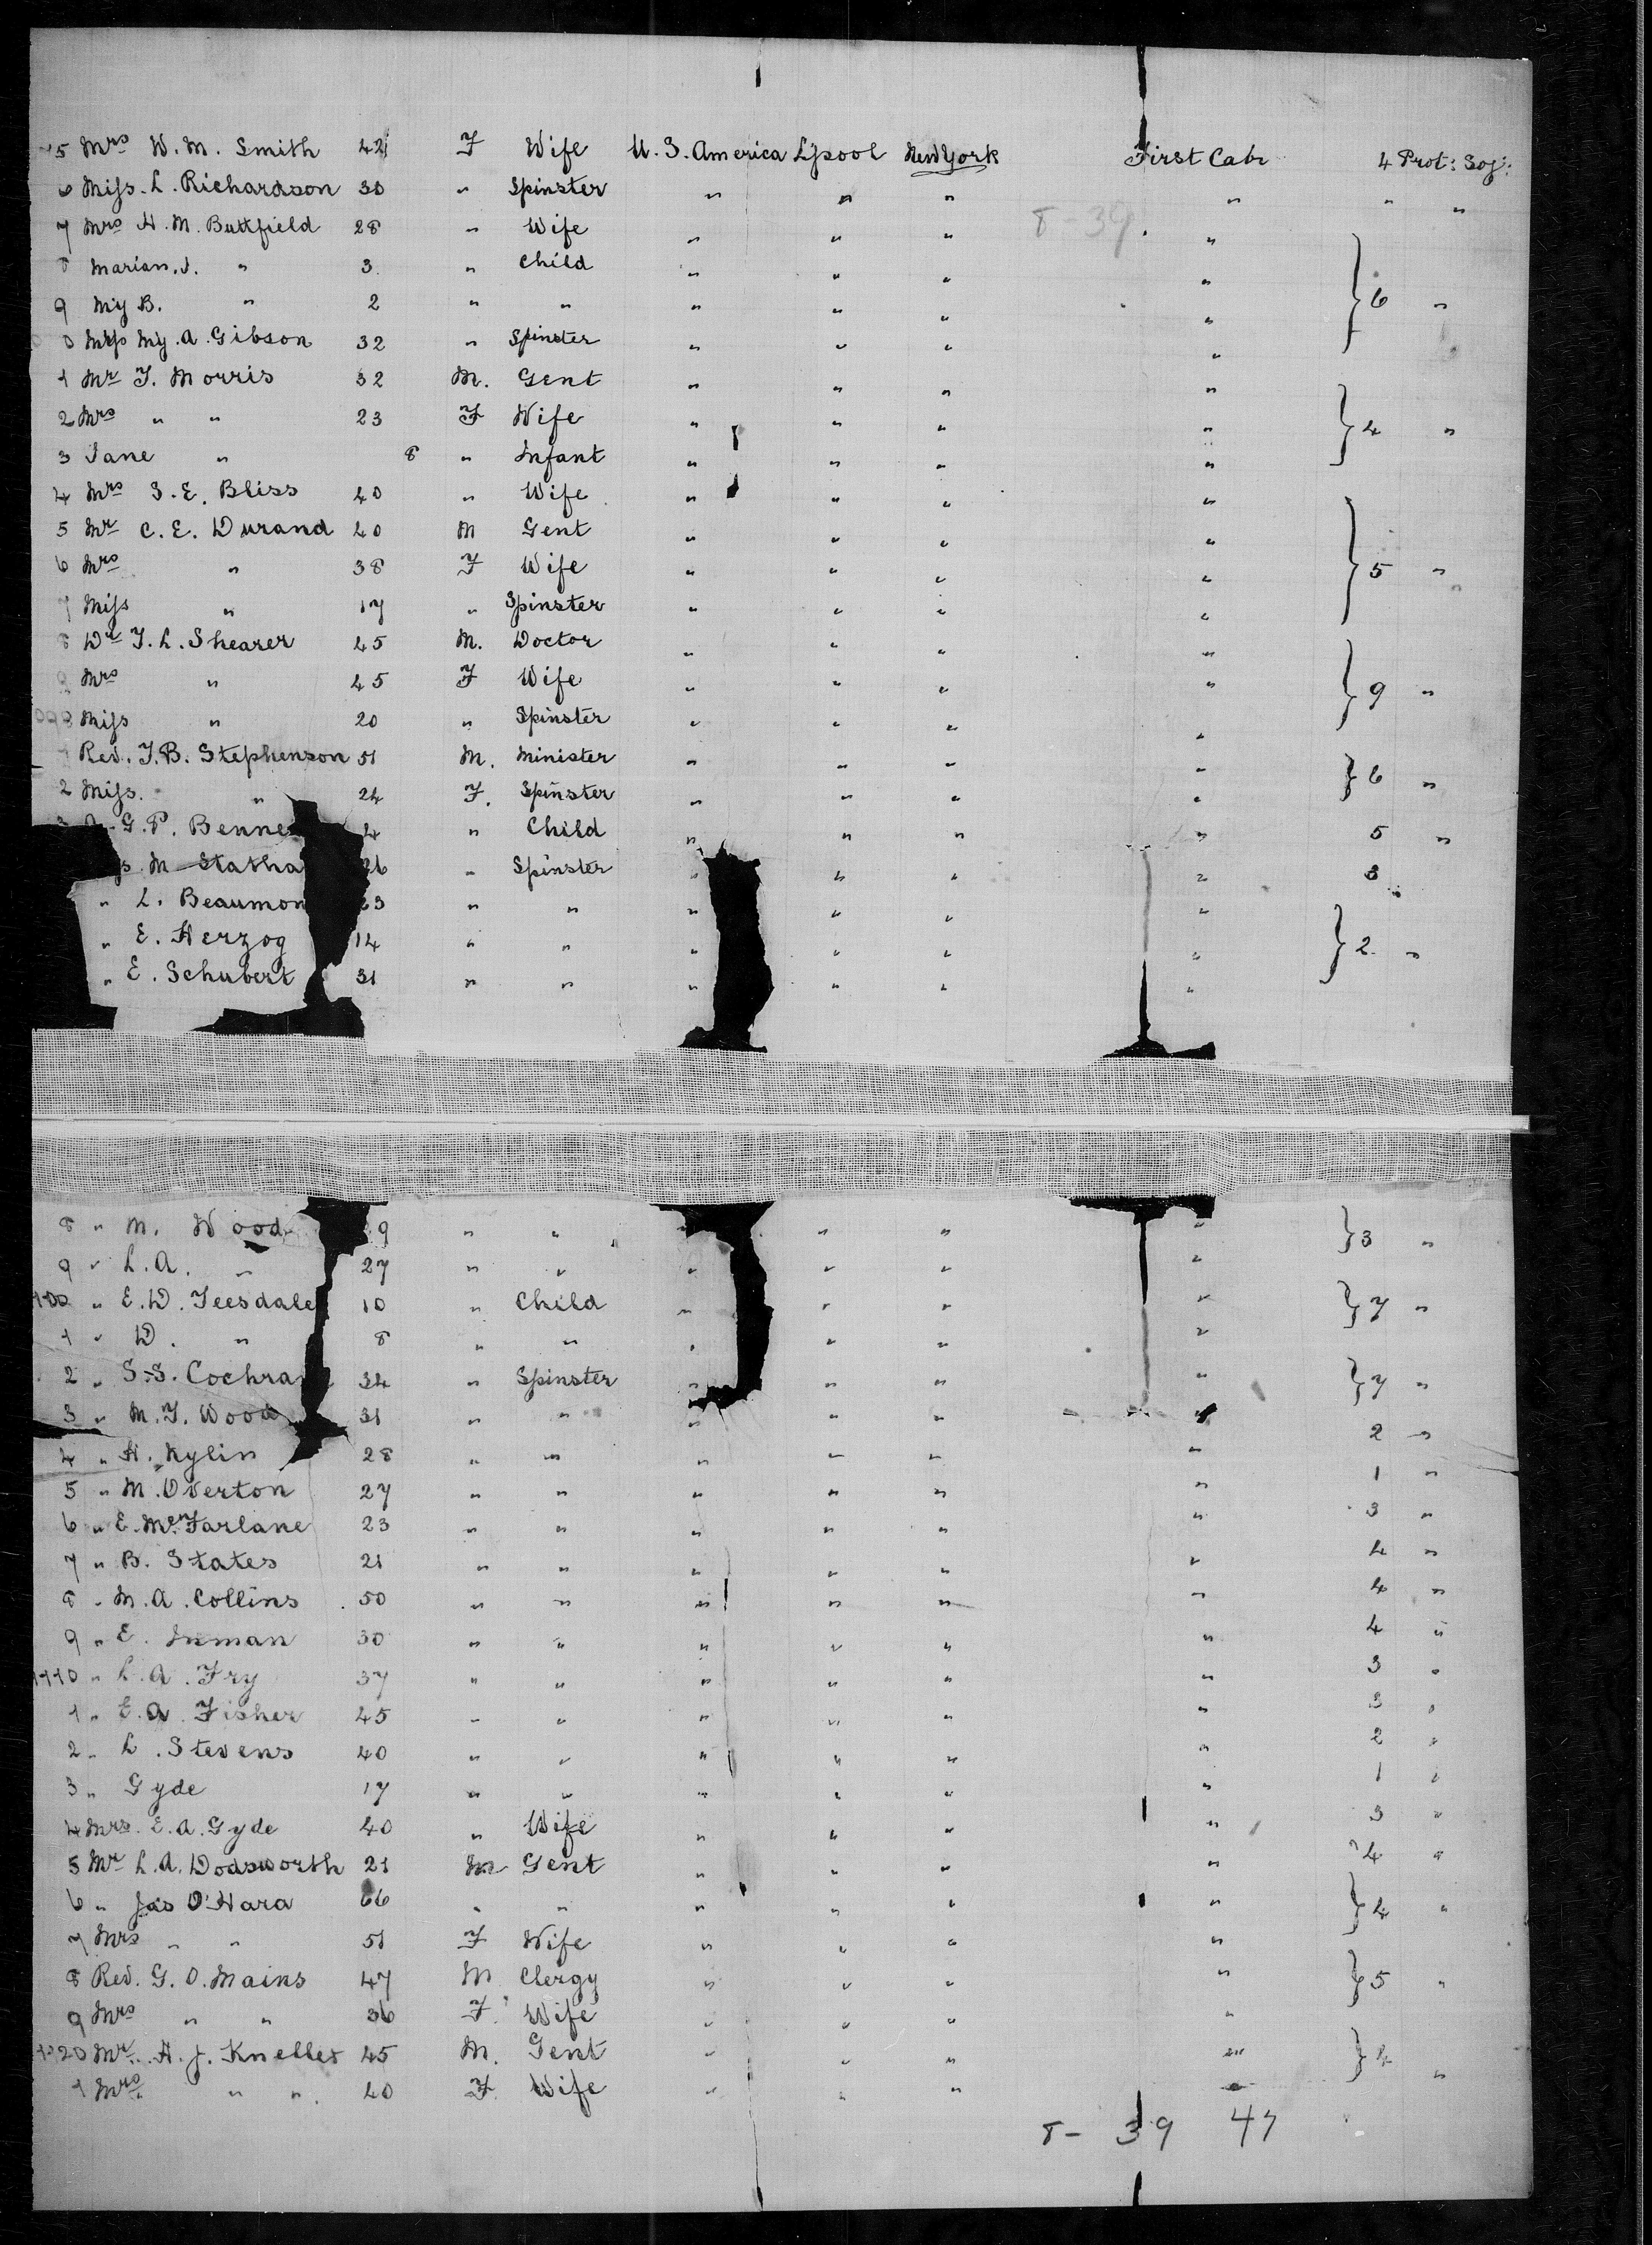 5 Mrs W. M. Smith 42 F Wife U. S. America L'pool New York First Cabn 4 Prot: Soj:
6 Miss. L. Richardson 30 " Spinster " " " " " "
7 Mrs H. M. Buttfield 28 " Wife " " " 8 - 39. "
8 Marian. J. " 3 " Child " " " "
9 My B. " 2 " " " " " " } 6 "
0 Miss My. A. Gibson 32 " Spinster " " " "
1 Mr T. Morris 32 M. Gent " " " "
2 Mrs " " 23 F Wife " " " " } 4 "
3 Jane " 8 " Infant " " " "
4 Mrs S. E. Bliss 40 " Wife " " " "
5 Mr C. E. Durand 40 M Gent " " " "
6 Mrs " 38 F Wife " " " " } 5 "
7 Miss " 17 " Spinster " " " "
8 Dr T. L. Shearer 45 M. Doctor " " " "
9 Mrs " 45 F Wife " " " " } 9 "
Miss " 20 " Spinster " " " "
1 Rev. T. B. Stephenson 51 M. Minister " " " " } 6 "
2 Miss. " 24 F. Spinster " " " "
G. P. Benne 4 " Child " " " " 5 "
M Statha 26 " Spinster " " " " 3 "
" L. Beaumon 23 " " " " " "
" E. Herzog 14 " " " " " " } 2 "
" E. Schubert 31 " " " " " "
8 " M. Wood 9 " " " " " } 3 "
9 " L. A. " 27 " " " " " "
1100 " E. W. Teesdale 10 " Child " " " " } 7 "
1 " W. " 8 " " " " " "
2 " S. S. Cochra 34 " Spinster " " " " } 7 "
3 " M. T. Wood 31 " " " " " "
4 " H. Kylin 28 " " " " " " 2 "
5 " M. Overton 27 " " " " " " 1 "
6 " E. McFarlane 23 " " " " " " 3 "
7 " B. States 21 " " " " " " 4 "
8 " M. A. Collins 50 " " " " " " 4 "
9 " E. Inman 30 " " " " " " 4 "
1110 " L. A. Fry 37 " " " " " " 3 "
1 " E. A. Fisher 45 " " " " " " 3 "
2 " L. Stevens 40 " " " " " " 2 "
3 " Gyde 17 " " " " " " 1 "
4 Mrs. E. A. Gyde 40 " Wife " " " " 3 "
5 Mr L. A. Dodsworth 21 M Gent " " " " 4 "
6 " Jas O'Hara 66 " " " " " " } 4 "
7 Mrs " " 51 F Wife " " " "
8 Rev. G. O. Mains 47 M Clergy " " " " } 5 "
9 Mrs " " 36 F. Wife " " " "
1120 Mr. H. J. Kneller 45 M. Gent " " " " } "
1 Mrs " " 40 F. Wife " " "
8 - 39 47